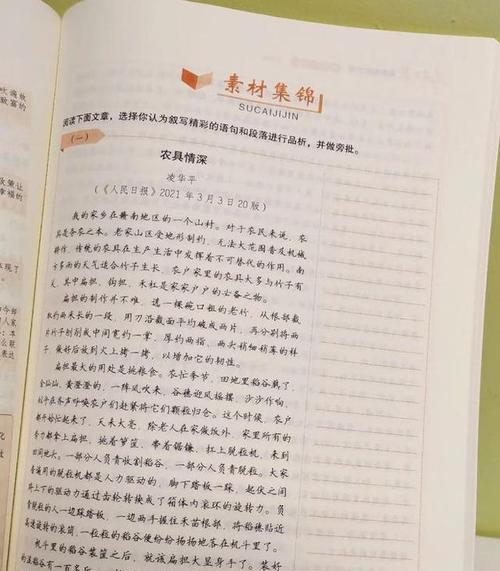 素材集锦
SUCAIJIJIN
阅读下面文章，选择你认为叙写精彩的语句和段落进行品析，并做旁批。
（一）
农具情深
凌华平
（《人民日报》2021年3月3日20版）
我的家乡在赣南地区的一个山村。对于农民来说，农
具是务农之本。老家山区受地形制约，无法大范围普及机械
耕作，传统的农具在生产生活中发挥着不可替代的作用。南
方多雨的天气适合竹子生长，农户家里的农具大多与竹子有
关，其中扁担、钩担、禾杠是家家户户的必备之物。
扁担的制作并不难，选一棵碗口粗的老竹，从根部截
取约两米长的一段，用刀沿截面平均破成两片，再分别将两
片竹子刨刮成中间宽约一掌，厚约两指，两头稍细稍窄的样
子，做好后放到火上烤一烤，以增加它的韧性。
扁担最大的用处是挑粮食。农忙季节，田地里稻谷熟了，
金灿灿、黄澄澄的，一阵风吹来，谷穗迎风摇摆，沙沙作响，
似乎在齐声呼唤农户们赶紧将它们颗粒归仓。这个时候，农户
都开始忙起来了，天未大亮，除老人在家做饭外，家里所有的
劳力都拿上扁担、挑着箩筐、带着镰鐮、扛上脱粒机，来到
田间地头。一部分人负责收割稻谷，一部分人负责脱粒。大家
普遍用的脱粒机都是人力驱动的，脚下踏板一踩，起伏之间
将上下的驱动力通过齿轮转换成了箱体内滚环的旋转力。负
责的人一边踩踏板，一边两手握住禾苗根部，将稻穗贴近
高速旋转的滚筒，一粒粒的稻谷便纷纷扬扬地落在机斗里。
机斗里的稻谷装筐之后，就该扁担大显身手了。装好